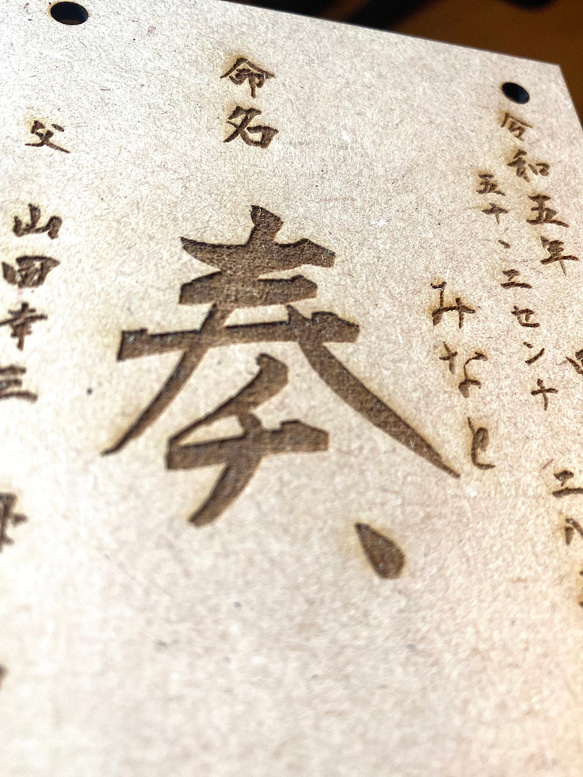 令和五年
五十、二センチ
みなと
命名
奏、
父 山田幸三